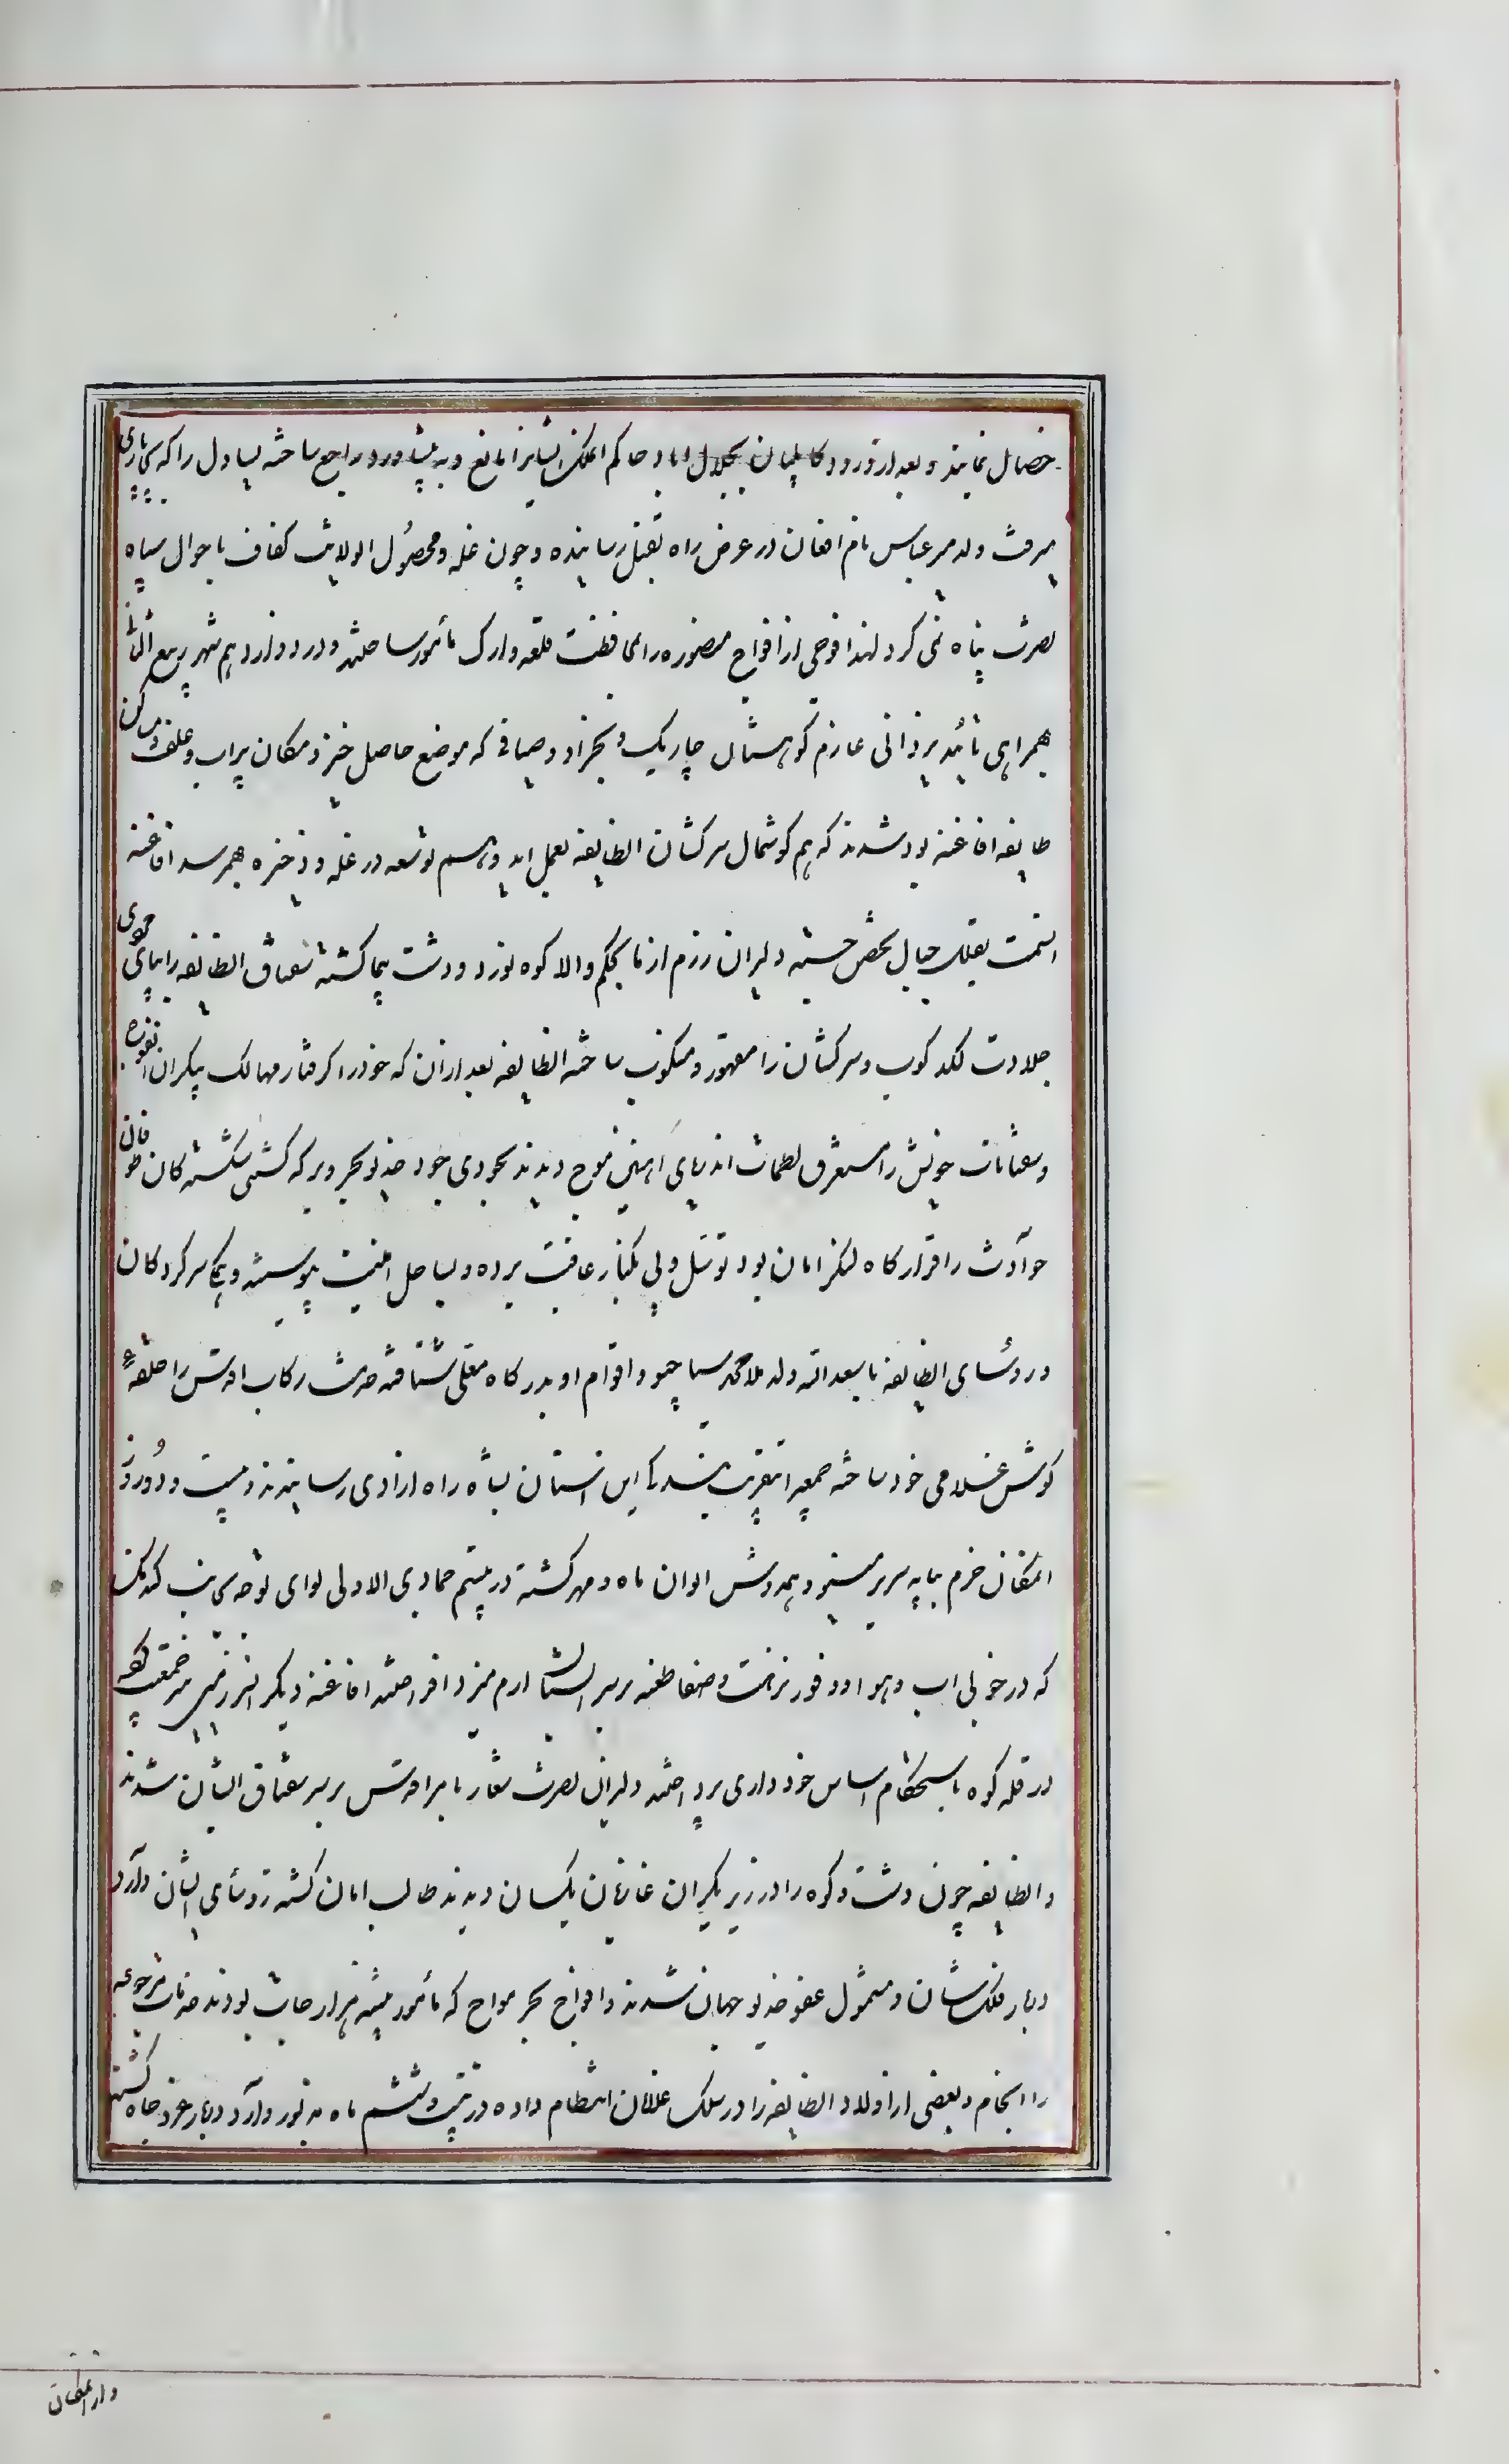 خصال نمایند و بعد از ورود کابلیان بجلال اباد حاکم انملک ایشانرا مانع و به پیشاور در راجع ساخته یساول را که می
میرفت ولد میر عباس نام افغان در عرض راه بقتل رسانیده و چون غله و محصُول انولایت کفاف باحوال سپاه
نصرت پناه نمی کرد لهذا فوجی از افواج منصوره را بمحافظت قلعه و ارک مأمور ساختند و در دوازدهم شهر ربیع الثانی
بهمراهی تأئید یزدانی عازم کوهستان چاریک و نجراد و صافی که موضع حاصل خیز و مکان پراب و علف و مسکن
طایفه افاغنه بود شدند که هم کوشمال سرکشان انطایفه بعمل اید و هم توسعه در غله و ذخیره بهمرسد افاغنه
انسمت بقلل جبال تحصن جسته دلیران رزم ازما بحکم والا کوه نورد و دشت پیما کشته سقناق انطایفه را بپای
جلادت لکد کوب و سرکشان را مقهور و منکوب ساخته انطایفه بعد ازان که خود را کرفتار مهالک بیکران
و سقناقات خویش را مستغرق لطمات اندریای اهنین موج دیدند بجودی جود خدیو بحر و بر که کشتی شکستکان طوفان
حوادث را قرارکاه لنکر امان بود توسل ولی بکنار عافیت برده و بساحل امنیت پیوسته و یکجا سرکردکان
و روئسای انطایفه با سعد الله ولد ملا محمد و اقوام او بدرکاه معلی شتافته خدمت رکاب اقدس را حلقهٔ
کوش غلامی خود ساخته جمیعا بتقریب بندکی این استان پناه راه ازادی رسانیدند و بیست و دو روز
انمکان خرم بپایه سریر و همدوش ایوان ماه و مهر کشته در بیستم جمادی الاولی لوای توجه بجانب کندمک
که در خوبی اب و هوا و وفور نزهت و صفا طعنه بر بستان ارم میزد افراختند افاغنه دیکر انسرزمین
در قله کوه باستحکام اساس خودداری پرداخته دلیران نصرت شعار بامر اقدس بر سر سقناق ایشان شدند
و انطایفه چون دشت و کوه را در زیر یکران غازیان یکسان دیدند طالب امان کشته روئسای ایشان وارد
دربار فلک شان و مشمول عفو خدیو جهان شدند و افواج بحر مواج که مأمور به هزارجات بودند خدمات مرجوعه
را انجام و بعضی از اولاد انطایفه را در سلک غلامان انتظام داده در بیست و ششم ماه مذکور وارد دربار عز و جاه کشتند